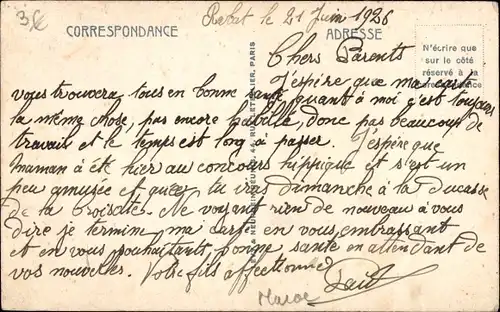 35c
Rabat le 21 Juin 1926
CORRESPONDANCE
ADRESSE
N'écrire que
sur le côté
réservé à la
correspondance
Chers Parents
J'espère que ma carte
vous trouvera tous en bonne santé quant à moi c'est toujours
la même chose, pas encore habillé, donc pas beaucoup de
travail et le temps est long a passer. J'espère que
Maman a été hier au concours hippique et s'est un
peu amusée et que tu iras dimanche à la ducasse
de la Croisette. Ne voyant rien de nouveau à vous
dire je termine ma carte en vous embrassant
et en vous souhaitant bonne santé en attendant de
vos nouvelles. Votre fils affectionné
Paul
Maroc
PARIS